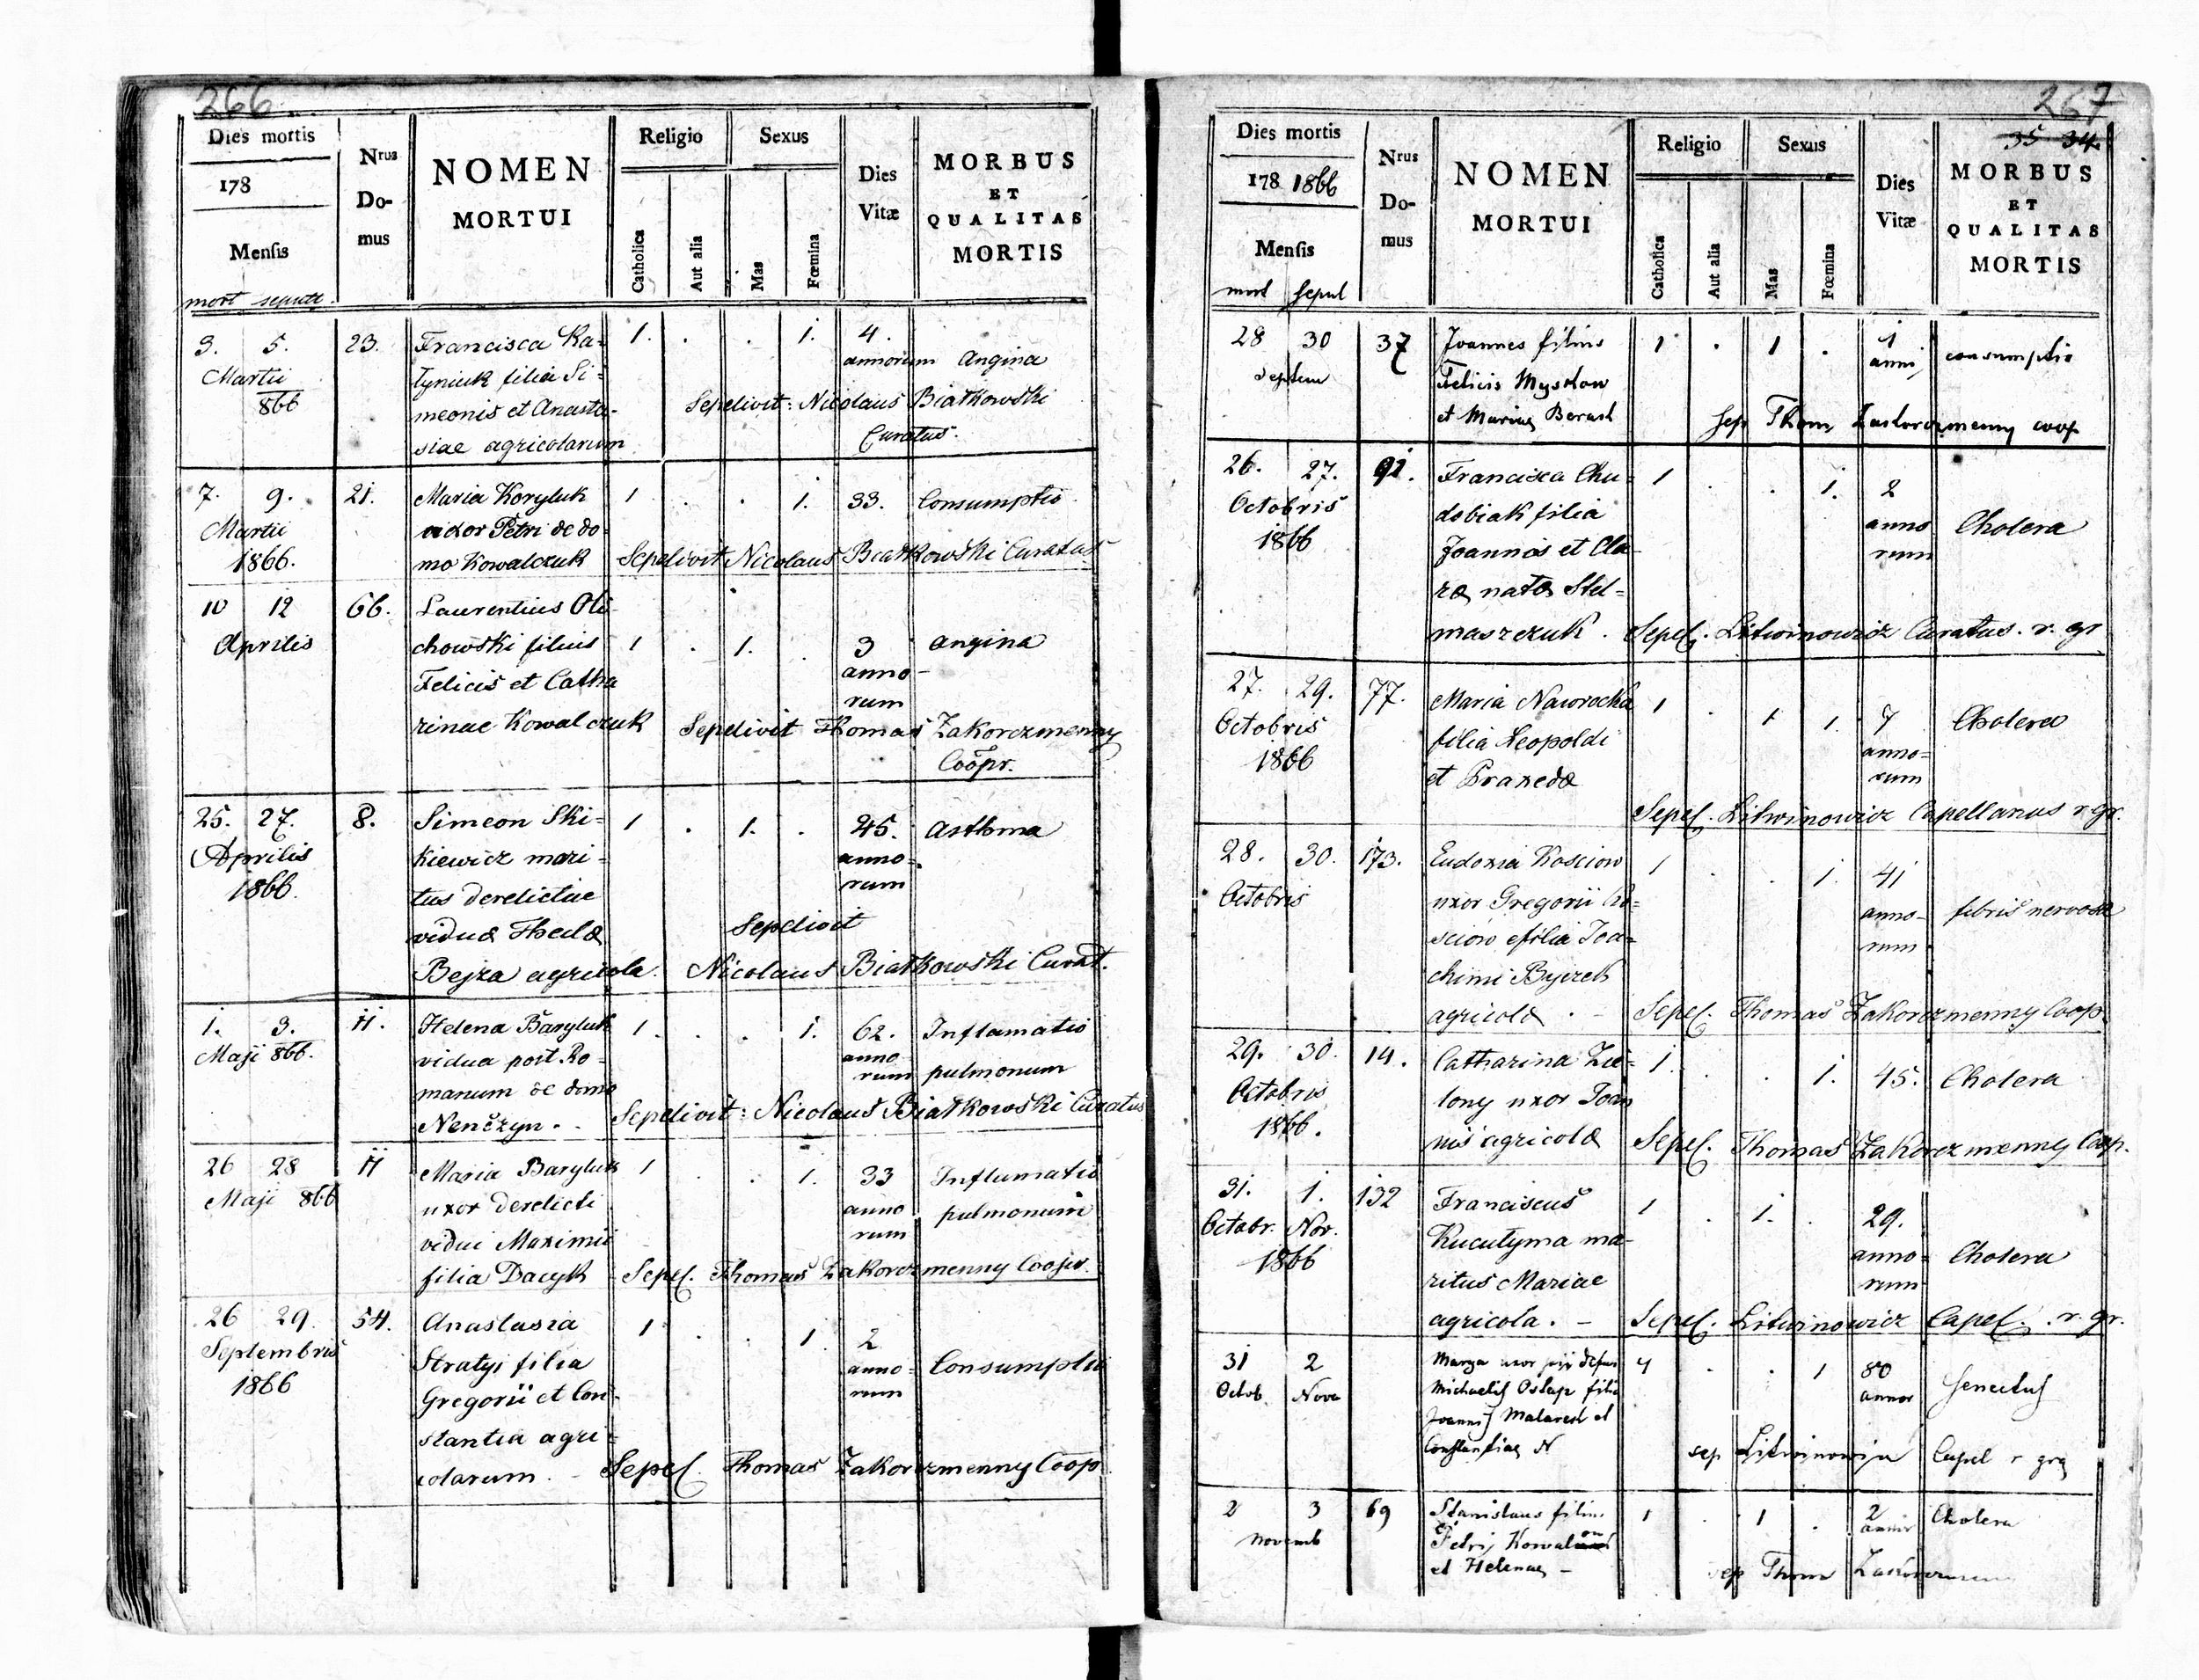 266
Dies mortis
178
Mensis
mort sepult.
Nrus Domus
NOMEN MORTUI
Religio
Catholica
Aut alia
Sexus
Mas
Fœmina
Dies Vitæ
MORBUS ET QUALITAS MORTIS
3. 5. 23. Francisca Ka= 1. . . 1. 4.
Martii łyniuk filia Si= annorum Angina
866 meonis et Anasta- Sepelivit: Nicolaus Białkowski
siae agricolarum Curatus.
7. 9. 21. Maria Koryluk 1 . . 1. 33. Consumptio
Martii uxor Petri de do=
1866. mo Kowalczuk Sepelivit Nicolaus Białkowski Curatus
10 12 66. Laurentius Oli-
Aprilis chowski filius 1 . 1. . 3 Angina
Felicis et Catha anno-
rum
rinae Kowalczuk Sepelivit Thomas Zakorczmenny
Coopr.
25. 27. 8. Simeon Ski= 1 . 1. . 45. Asthma
Aprilis kiewicz mari= anno-
1866. tus derelictae rum
viduæ Theclæ Sepelivit
Bejza agricola. Nicolaus Białkowski Curat.
1. 3. 11. Helena Baryluk 1. . . 1. 62. Inflamatio
Maji 866. vidua post Ro= anno
rum pulmonum
manum de domo
Nenczyn. Sepelivit: Nicolaus Białkowski Curatus
26 28 11 Maria Baryluk 1 . . 1. 33 Inflamatio
Maji 866 uxor derelicti anno pulmonum
vidui Maximii rum
filia Dacyk Sepel. Thomas Zakorczmenny Coopr.
26 29. 54. Anastasia 1 . . 1 2
Septembris Stratyj filia anno= Consumptio
1866 Gregorii et Con- rum
stantia agri=
colarum. Sepel. Thomas Zakorczmenny Coop
267
35 34.
Dies mortis
178 1866
Mensis
mort sepul
Nrus Domus
NOMEN MORTUI
Religio
Catholica
Aut alia
Sexus
Mas
Fœmina
Dies Vitæ
MORBUS ET QUALITAS MORTIS
28 30 37 Joannes filius 1 . 1 . 1
Septem Felicis Myskow anni consumptio
et Mariae Sep Thom Zakorczmenny coop
26. 27. 91. Francisca Chu= 1 . . 1. 2
Octobris dobiak filia anno Cholera
1866 Joannis et Cla- rum
ræ natæ Stel=
maszczuk. Sepel. Litwinowicz Curatus. r. gr
27. 29. 77. Maria Nawrocka 1 . 1 1. 7 Cholera
Octobris filia Leopoldi anno=
1866 et Praxedæ rum
Sepel. Litwinowicz Capellanus r gr.
28. 30. 173. Eudoxia Kosciow 1 . . 1. 41
Octobris uxor Gregorii Ko= anno- febris nervosa
sciow filia Joa= rum
chimi
agricolæ . - Sepel. Thomas Zakorczmenny Coop.
29. 30. 14. Catharina Zie= 1. . . 1. 45. Cholera
Octobris lony uxor Joan
1866. nis agricolæ Sepel. Thomas Zakorczmenny Coop.
31. 1. 132 Franciscus 1 . 1. . 29.
Octobr. Nov. Kucutyma ma- anno- Cholera
1866 ritus Mariae rum
agricola. - Sepel. Litwinowicz Capel. r. gr.
31 2 uxor 1 . . 1 80
Octob. Nove Michaelis Ostap filia annor Senectus
Joannis et
Constantiae N sep Litwinowicz Capel r gr
2 3 69 Stanislaus filius 1 . 1 . 2 Cholera
Novemb Petri
et Helenae - sep Thom